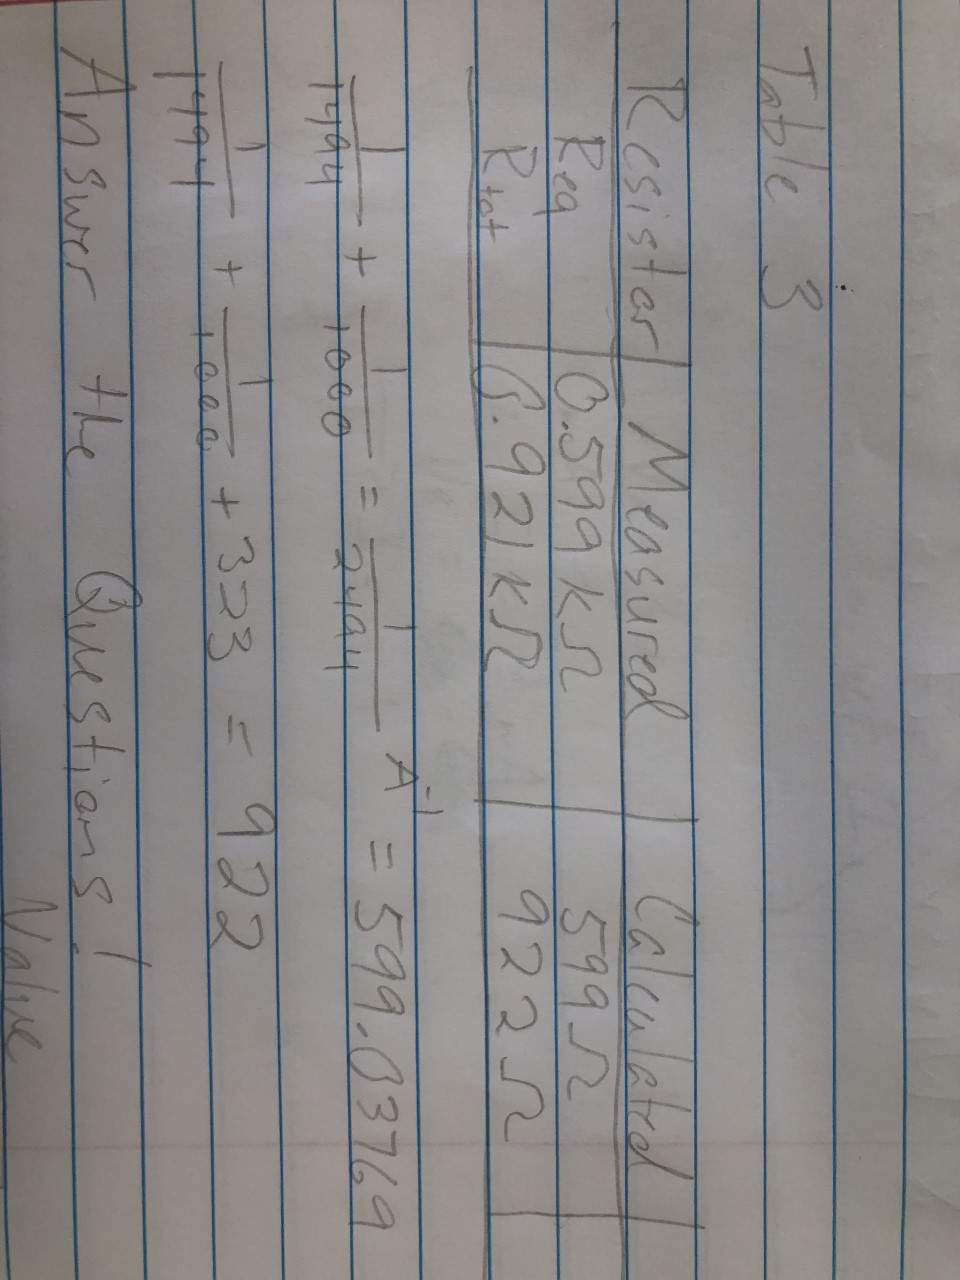 Table 3
Resistor Measured Calculated
Req 0.599 kΩ 599 Ω
Rtot 0.921 kΩ 922 Ω
1/1494 + 1/1000 = 1/2494 A^-1 = 599.03769
1/1494 + 1/1000 + 323 = 922
Answer the Questions!
Value